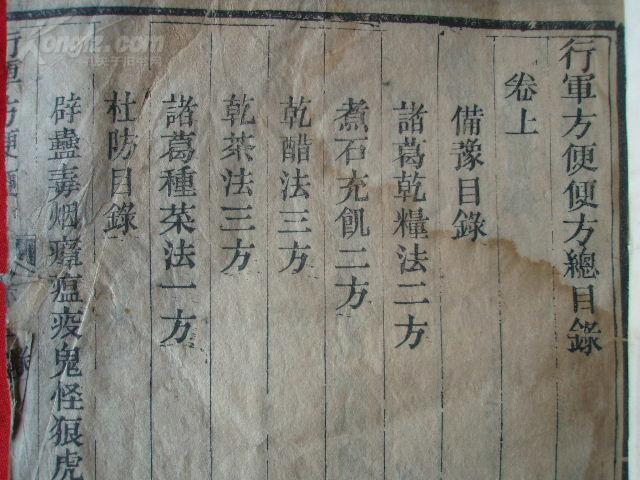 行軍方便便方總目錄
卷上
備豫目錄
諸葛乾糧法二方
煮石充飢二方
乾醋法三方
乾茶法三方
諸葛種菜法一方
杜防目錄
辟蠱毒烟瘴瘟疫鬼怪狼虎
行軍方便便
Kongfz.com